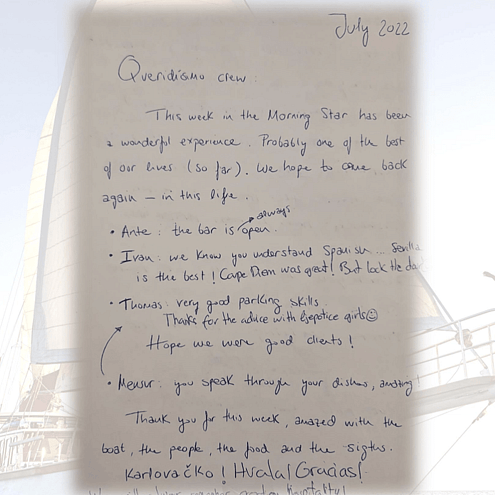 July 2022
Queridísimo crew:
This week in the Morning Star has been
a wonderful experience. Probably one of the best
of our lives (so far). We hope to come back
again – in this life.
always
• Ante: the bar is open.
• Ivan: we know you understand Spanish ... Sevilla
is the best! Carpe Diem was great! But lock the
• Thomas: very good parking skills.
Thanks for the advice with girls☺
Hope we were good clients!
• Mensur: you speak through your dishes, amazing!
Thank you for this week, amazed with the
boat, the people, the food and the sights.
Karlovačko! Hvala! Gracias!